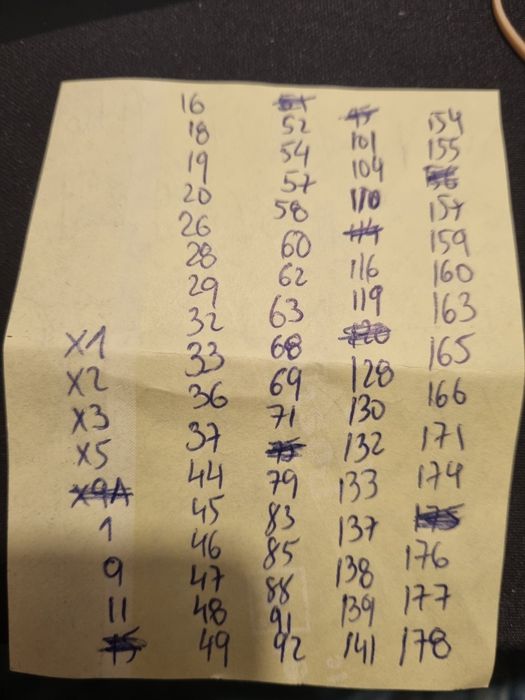 X1
X2
X3
X5
X9A
1
9
11
16
18
19
20
26
28
29
32
33
36
37
44
45
46
47
48
49
52
54
57
58
60
62
63
68
69
71
79
83
85
88
91
92
101
104
110
114
116
119
120
128
130
132
133
137
138
139
141
154
155
157
159
160
163
165
166
171
174
175
176
177
178